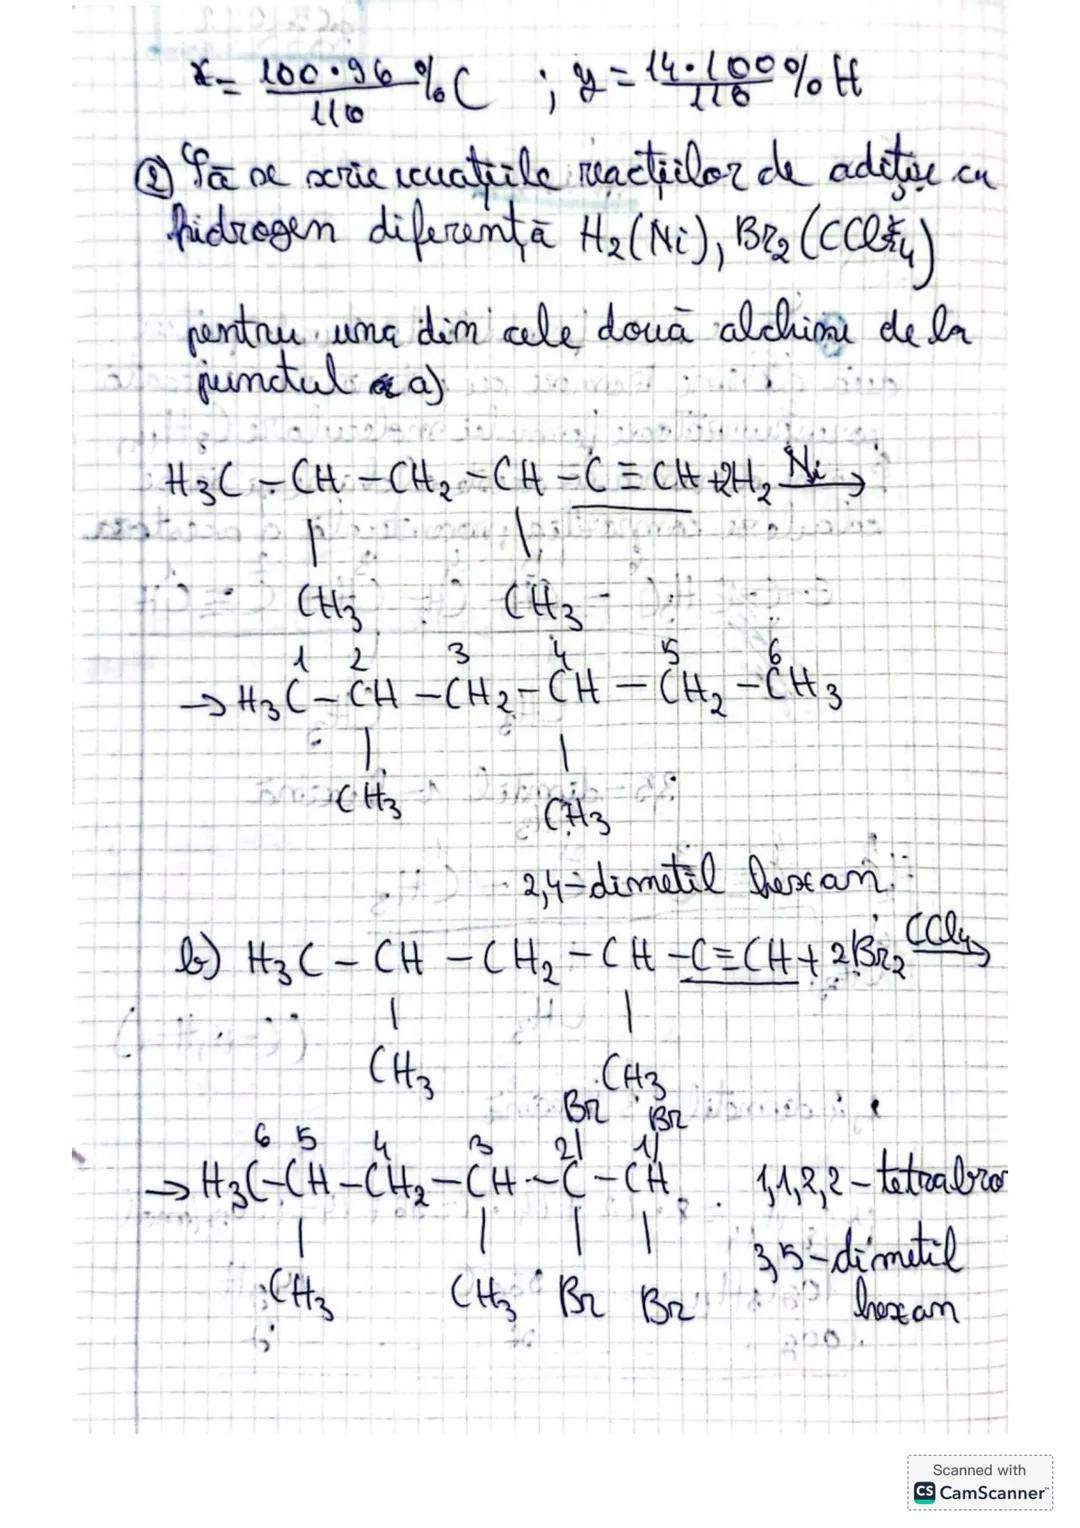 x = 100·96/110 % C ; y = 14·100/110 % H
② Să se scrie ecuațiile reacțiilor de adiție cu
hidrogen diferență H₂(Ni), Br₂(CCl₄)
pentru una din cele două alchine de la
punctul a)
H₃C – CH – CH₂ – CH – C ≡ CH + 2H₂ Ni→
CH₃ CH₃
1 2 3 4 5 6
→ H₃C – CH – CH₂ – CH – CH₂ – CH₃
CH₃ CH₃
2,4-dimetil hexan
b) H₃C – CH – CH₂ – CH – C ≡ CH + 2Br₂ CCl₄→
CH₃ CH₃
Br Br
6 5 4 3 2 1
→ H₃C – CH – CH₂ – CH – C – CH 1,1,2,2 – tetrabro
CH₃ CH₃ Br Br
3,5-dimetil
hexan
Scanned with
CS CamScanner